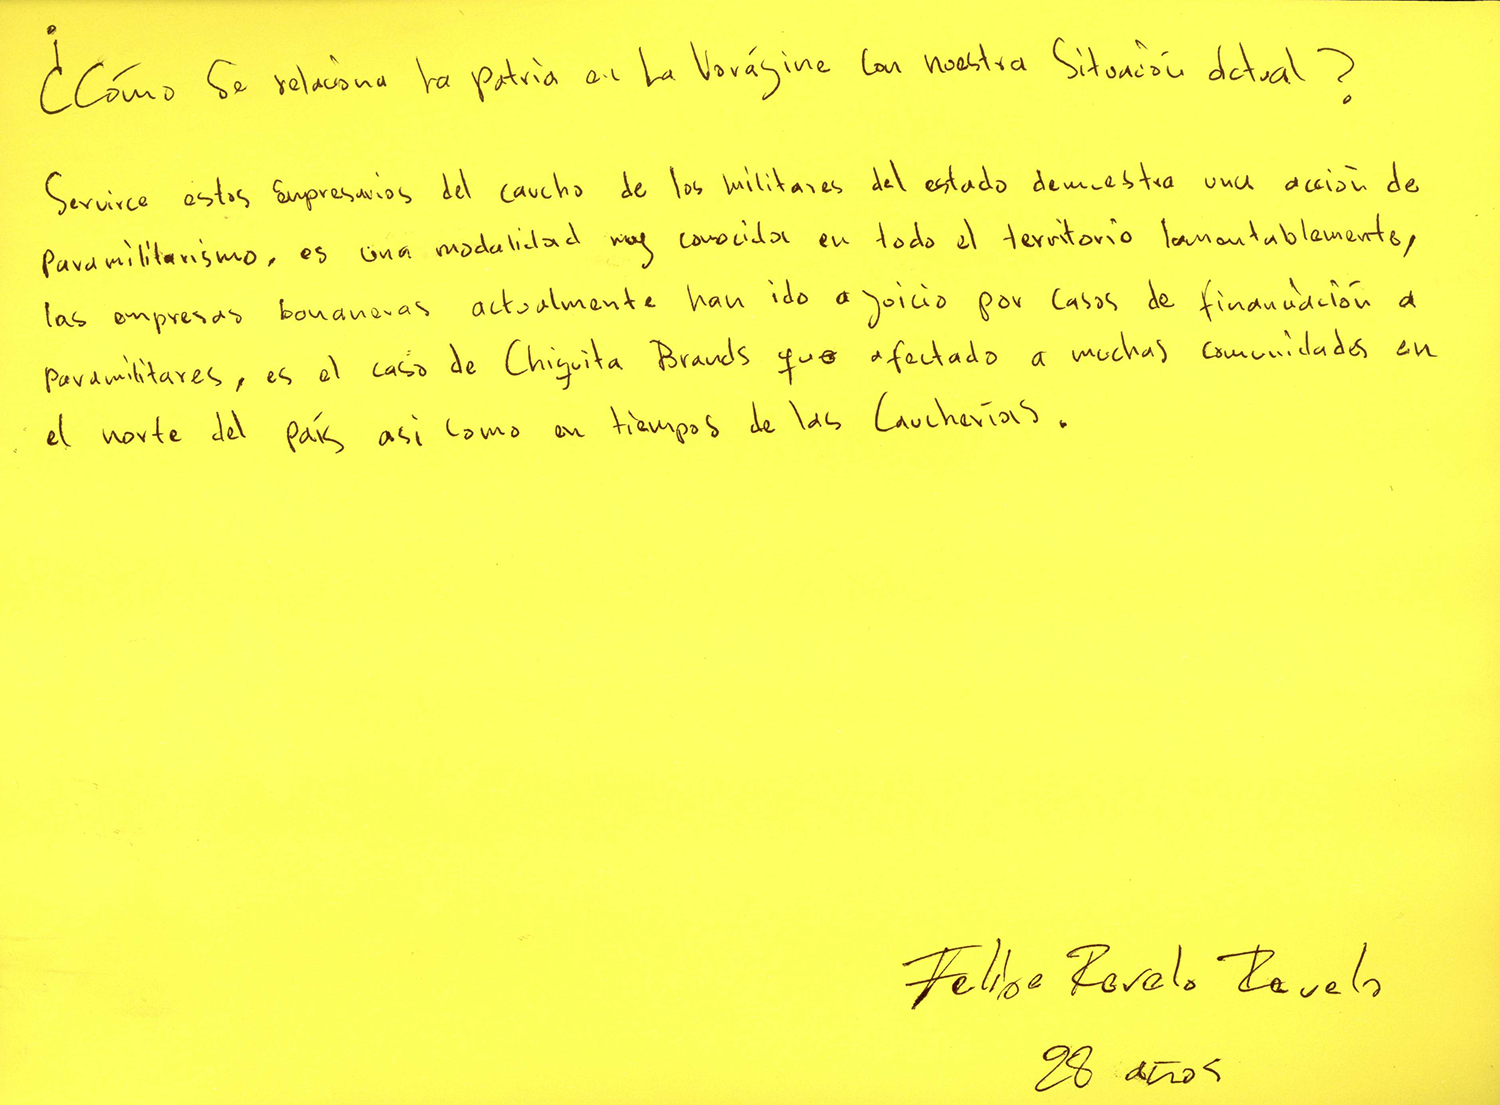 ¿Cómo Se relaciona la patria en La Vorágine con nuestra Situación actual?
Servirce estos Empresarios del caucho de los militares del estado demuestra una acción de
paramilitarismo, es una modalidad muy conocida en todo el territorio lamentablemente,
las empresas bananeras actualmente han ido a juicio por casos de financiación a
paramilitares, es el caso de Chiquita Brands que afectado a muchas comunidades en
el norte del país asi como en tiempos de las Caucherías.
Felipe Revelo Revelo
28 años